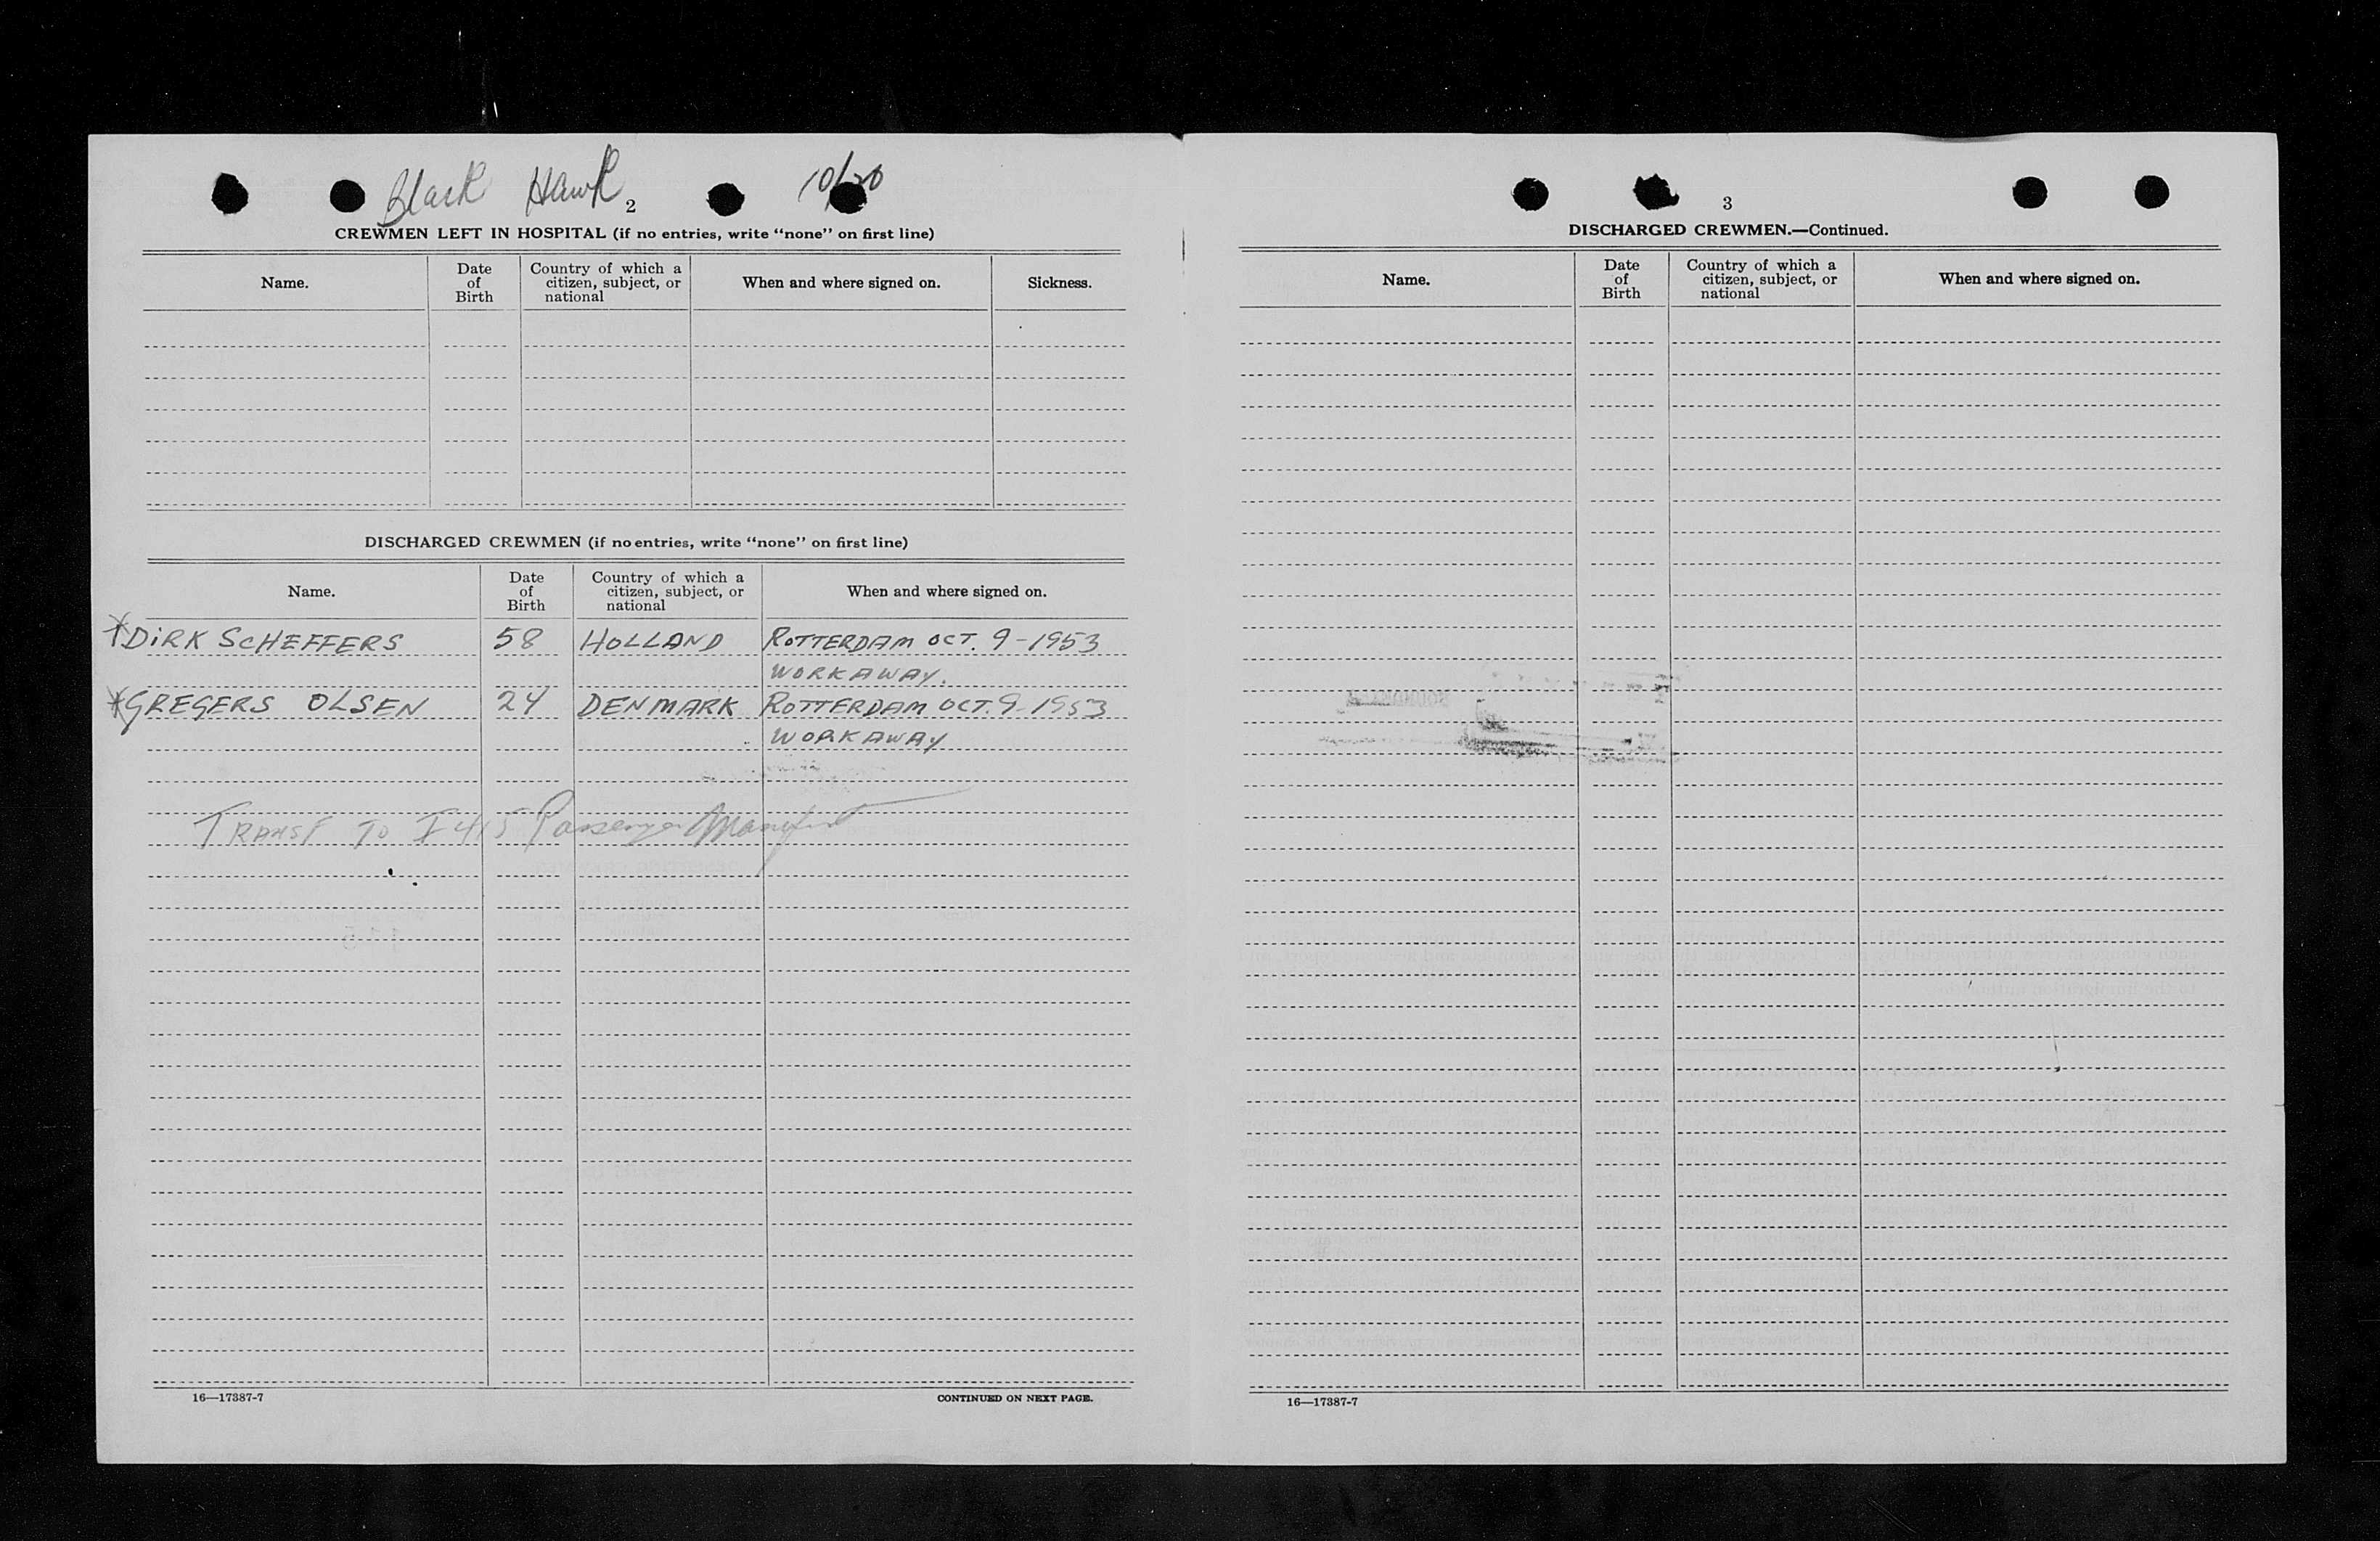 Black Hawk 10/20
2
CREWMEN LEFT IN HOSPITAL (if no entries, write “none” on first line)
Name. Date of Birth Country of which a citizen, subject, or national When and where signed on. Sickness.
DISCHARGED CREWMEN (if no entries, write “none” on first line)
Name. Date of Birth Country of which a citizen, subject, or national When and where signed on.
DIRK SCHEFFERS 58 HOLLAND ROTTERDAM OCT. 9-1953
WORKAWAY.
GREGERS OLSEN 24 DENMARK ROTTERDAM OCT. 9-1953
WORKAWAY
TRANSF TO I 415 Passenger Manifest
16—17387-7 CONTINUED ON NEXT PAGE.
3
DISCHARGED CREWMEN.—Continued.
Name. Date of Birth Country of which a citizen, subject, or national When and where signed on.
16—17387-7